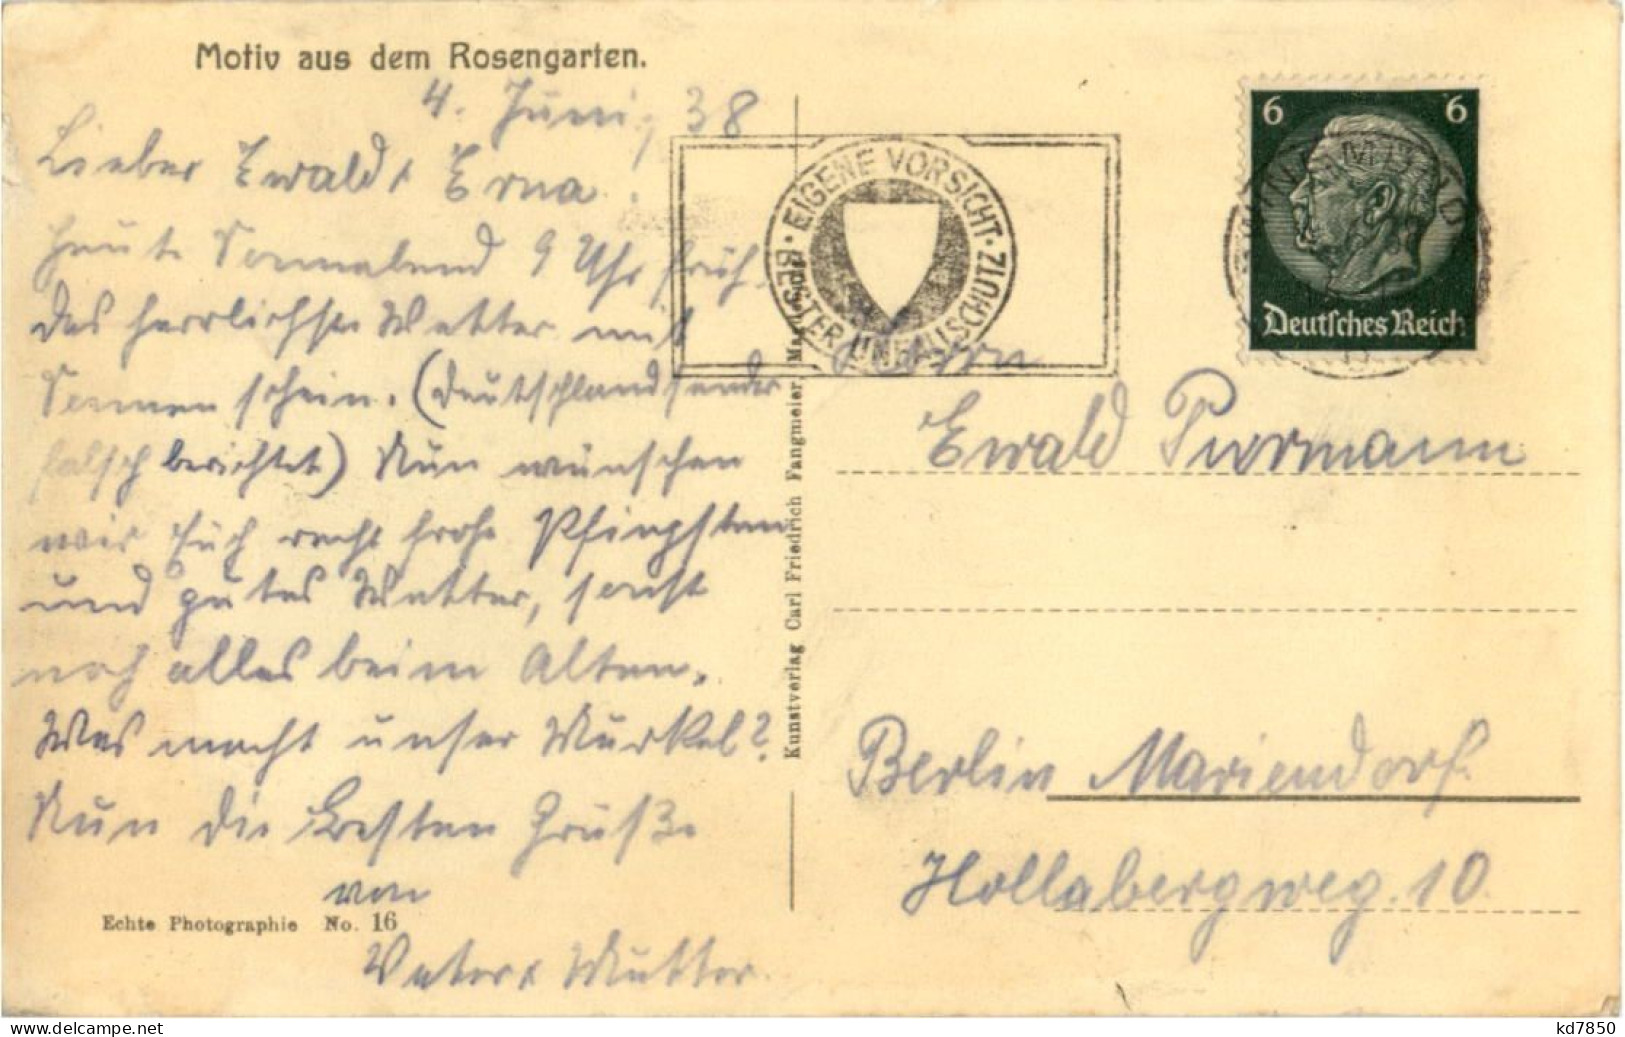 Motiv aus dem Rosengarten.
4. Juni, 38
Lieber Ewald & Erna!
Heute Sonnabend 9 Uhr früh.
das herrlichste Wetter mit
Sonnenschein. (Deutschlandsender
falsch berichtet) Nun wünschen
wir Euch recht frohe Pfingsten
und gutes Wetter, sonst
noch alles beim Alten.
Was macht unser Murkel?
Nun die besten Grüße
von
Vater & Mutter.
Echte Photographie No. 16
Kunstverlag Carl Friedrich Fangmeier,
EIGENE VORSICHT · BESTER UNFALLSCHUTZ ·
6 6
Deutsches Reich
Herrn
Ewald Purmann
Berlin Mariendorf.
Hollabergweg. 10.
delcampe.net
kd7850